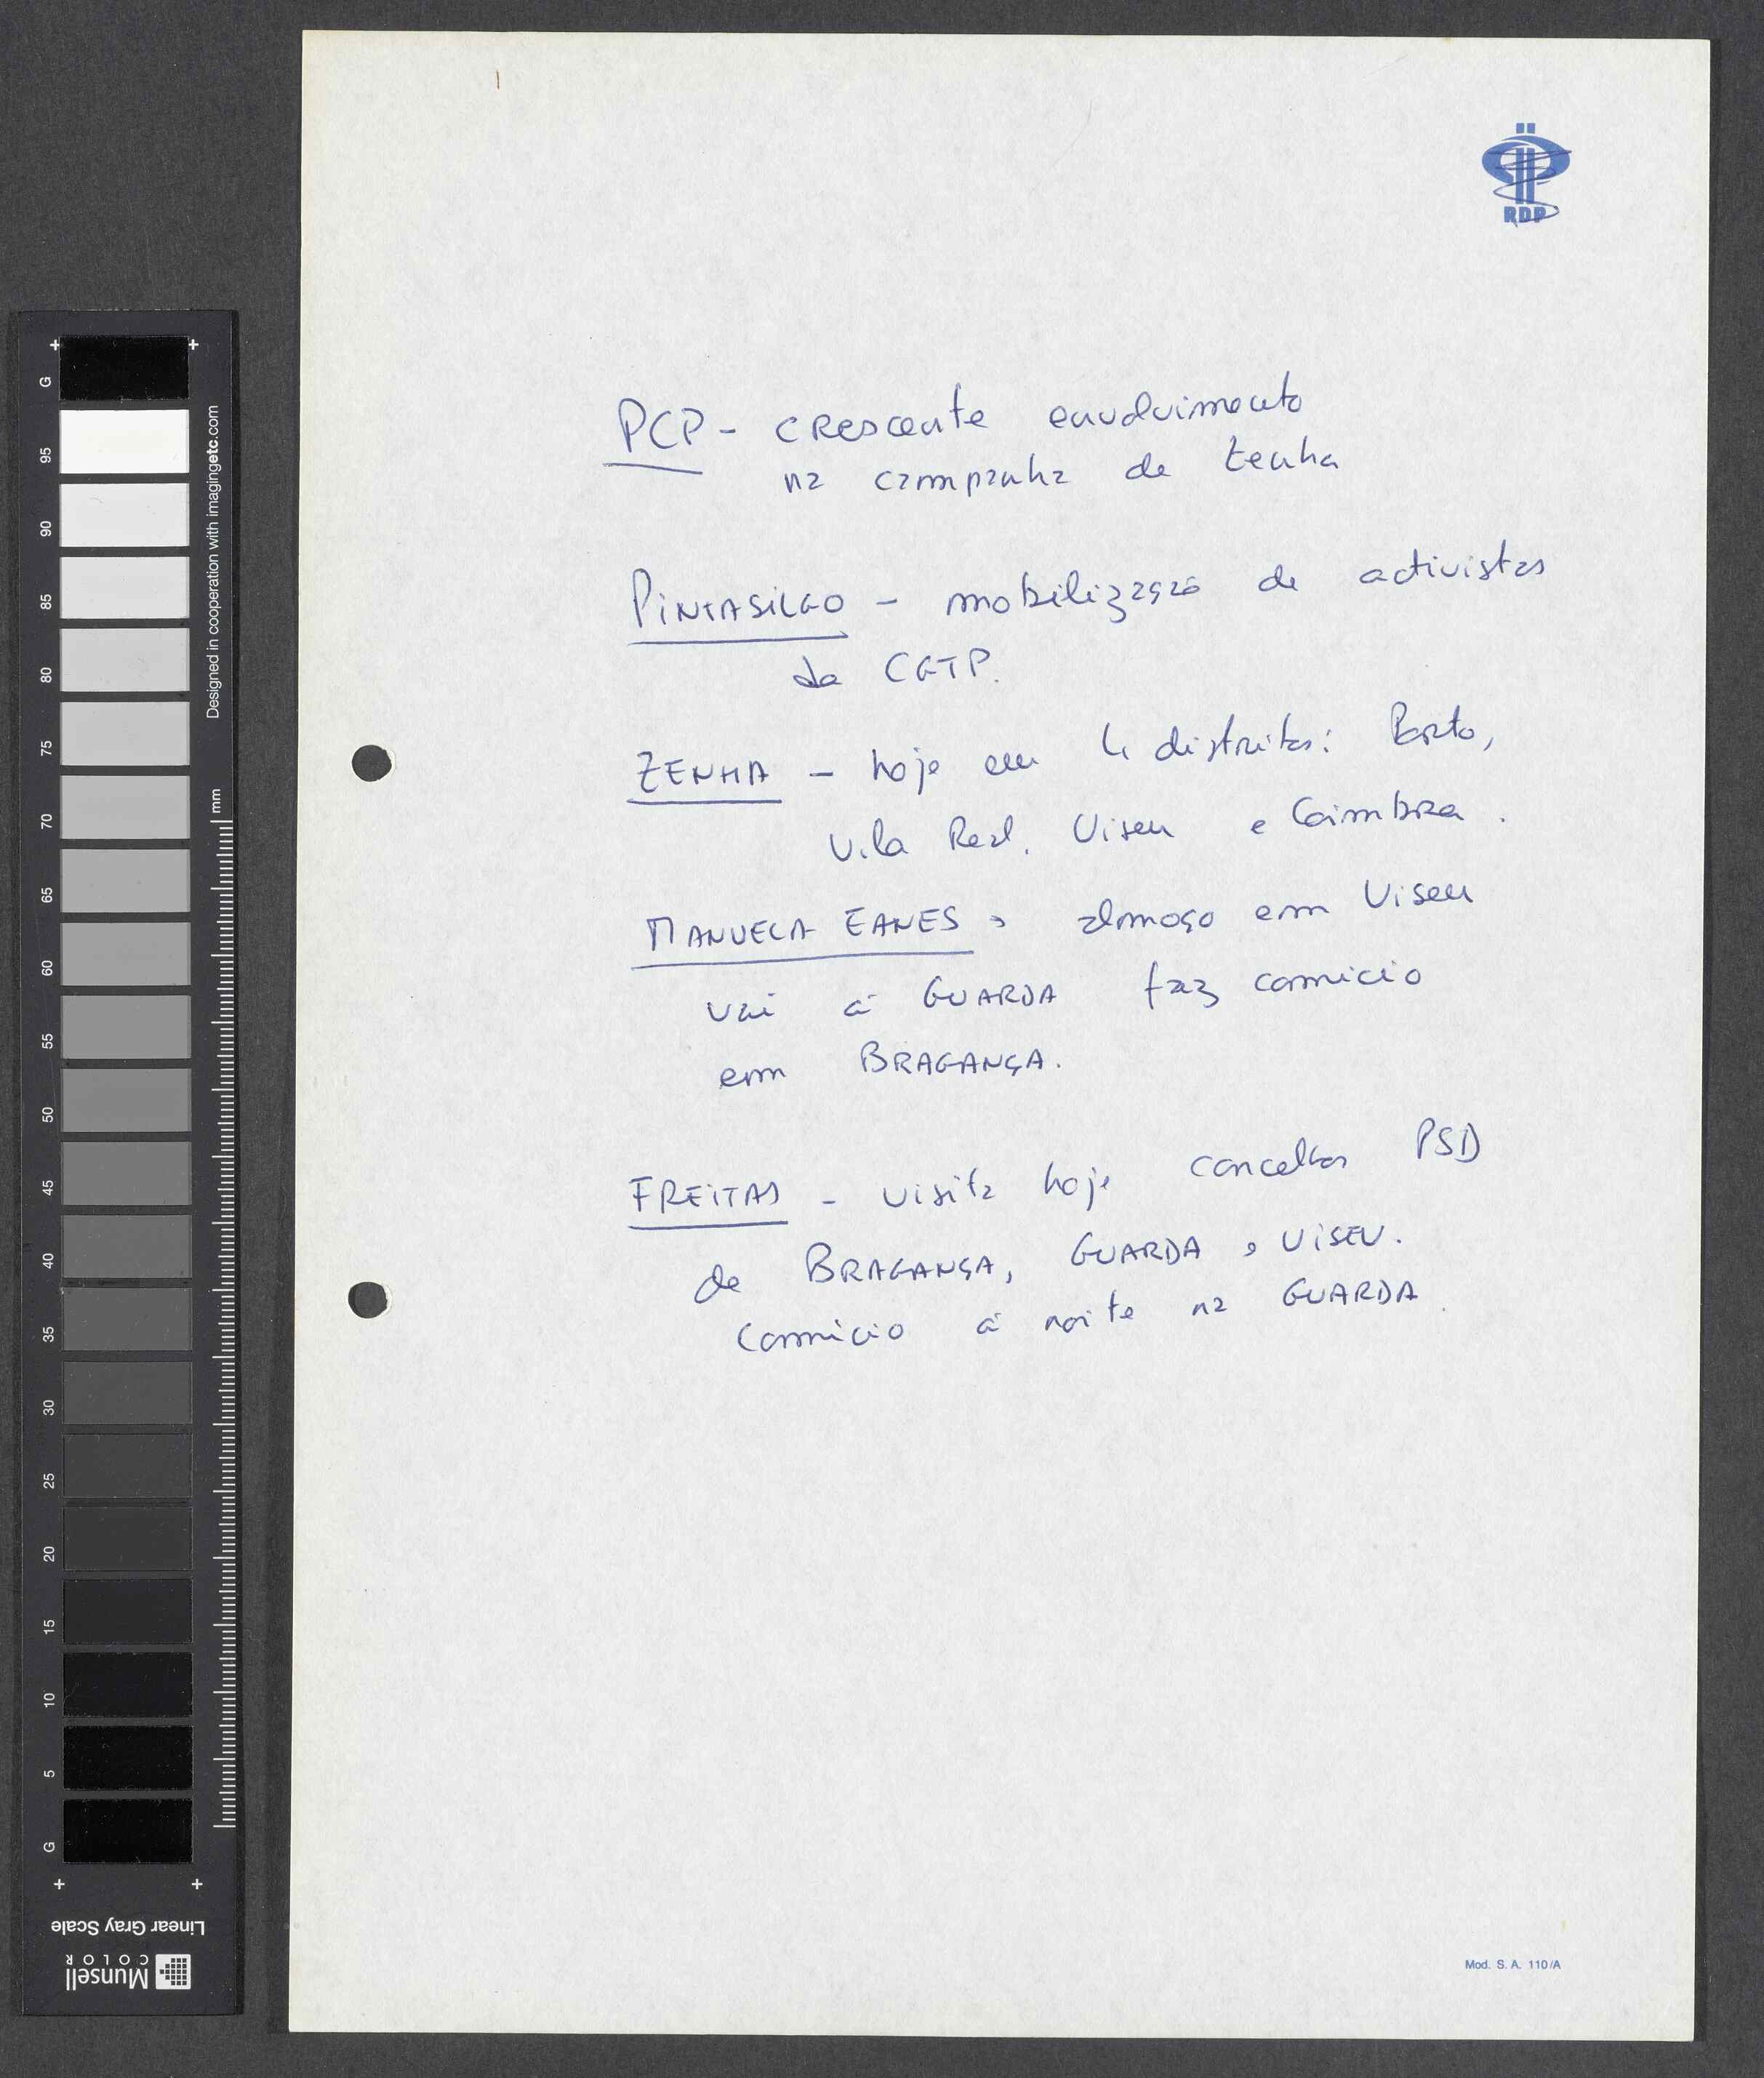 RDP
PCP - crescente envolvimento
na campanha de Zenha
PINTASILGO - mobilização de activistas
da CGTP.
ZENHA - hoje em 4 distritos: Porto,
Vila Real, Viseu e Coimbra.
MANUELA EANES, almoço em Viseu
vai à GUARDA faz comício
em BRAGANÇA.
FREITAS - visita hoje concelhos PSD
de BRAGANÇA, GUARDA e VISEU.
Comício à noite na GUARDA.
Mod. S. A. 110/A
G
95
90
85
80
75
70
65
60
55
50
45
40
35
30
25
20
15
10
5
G
Designed in cooperation with imagingetc.com
mm
Linear Gray Scale
Munsell
COLOR